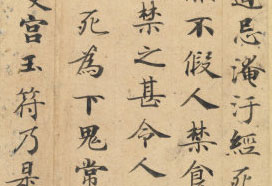 忌淹汙經死
不假人禁食
禁之甚令人
死為下鬼常
宮玉符乃是